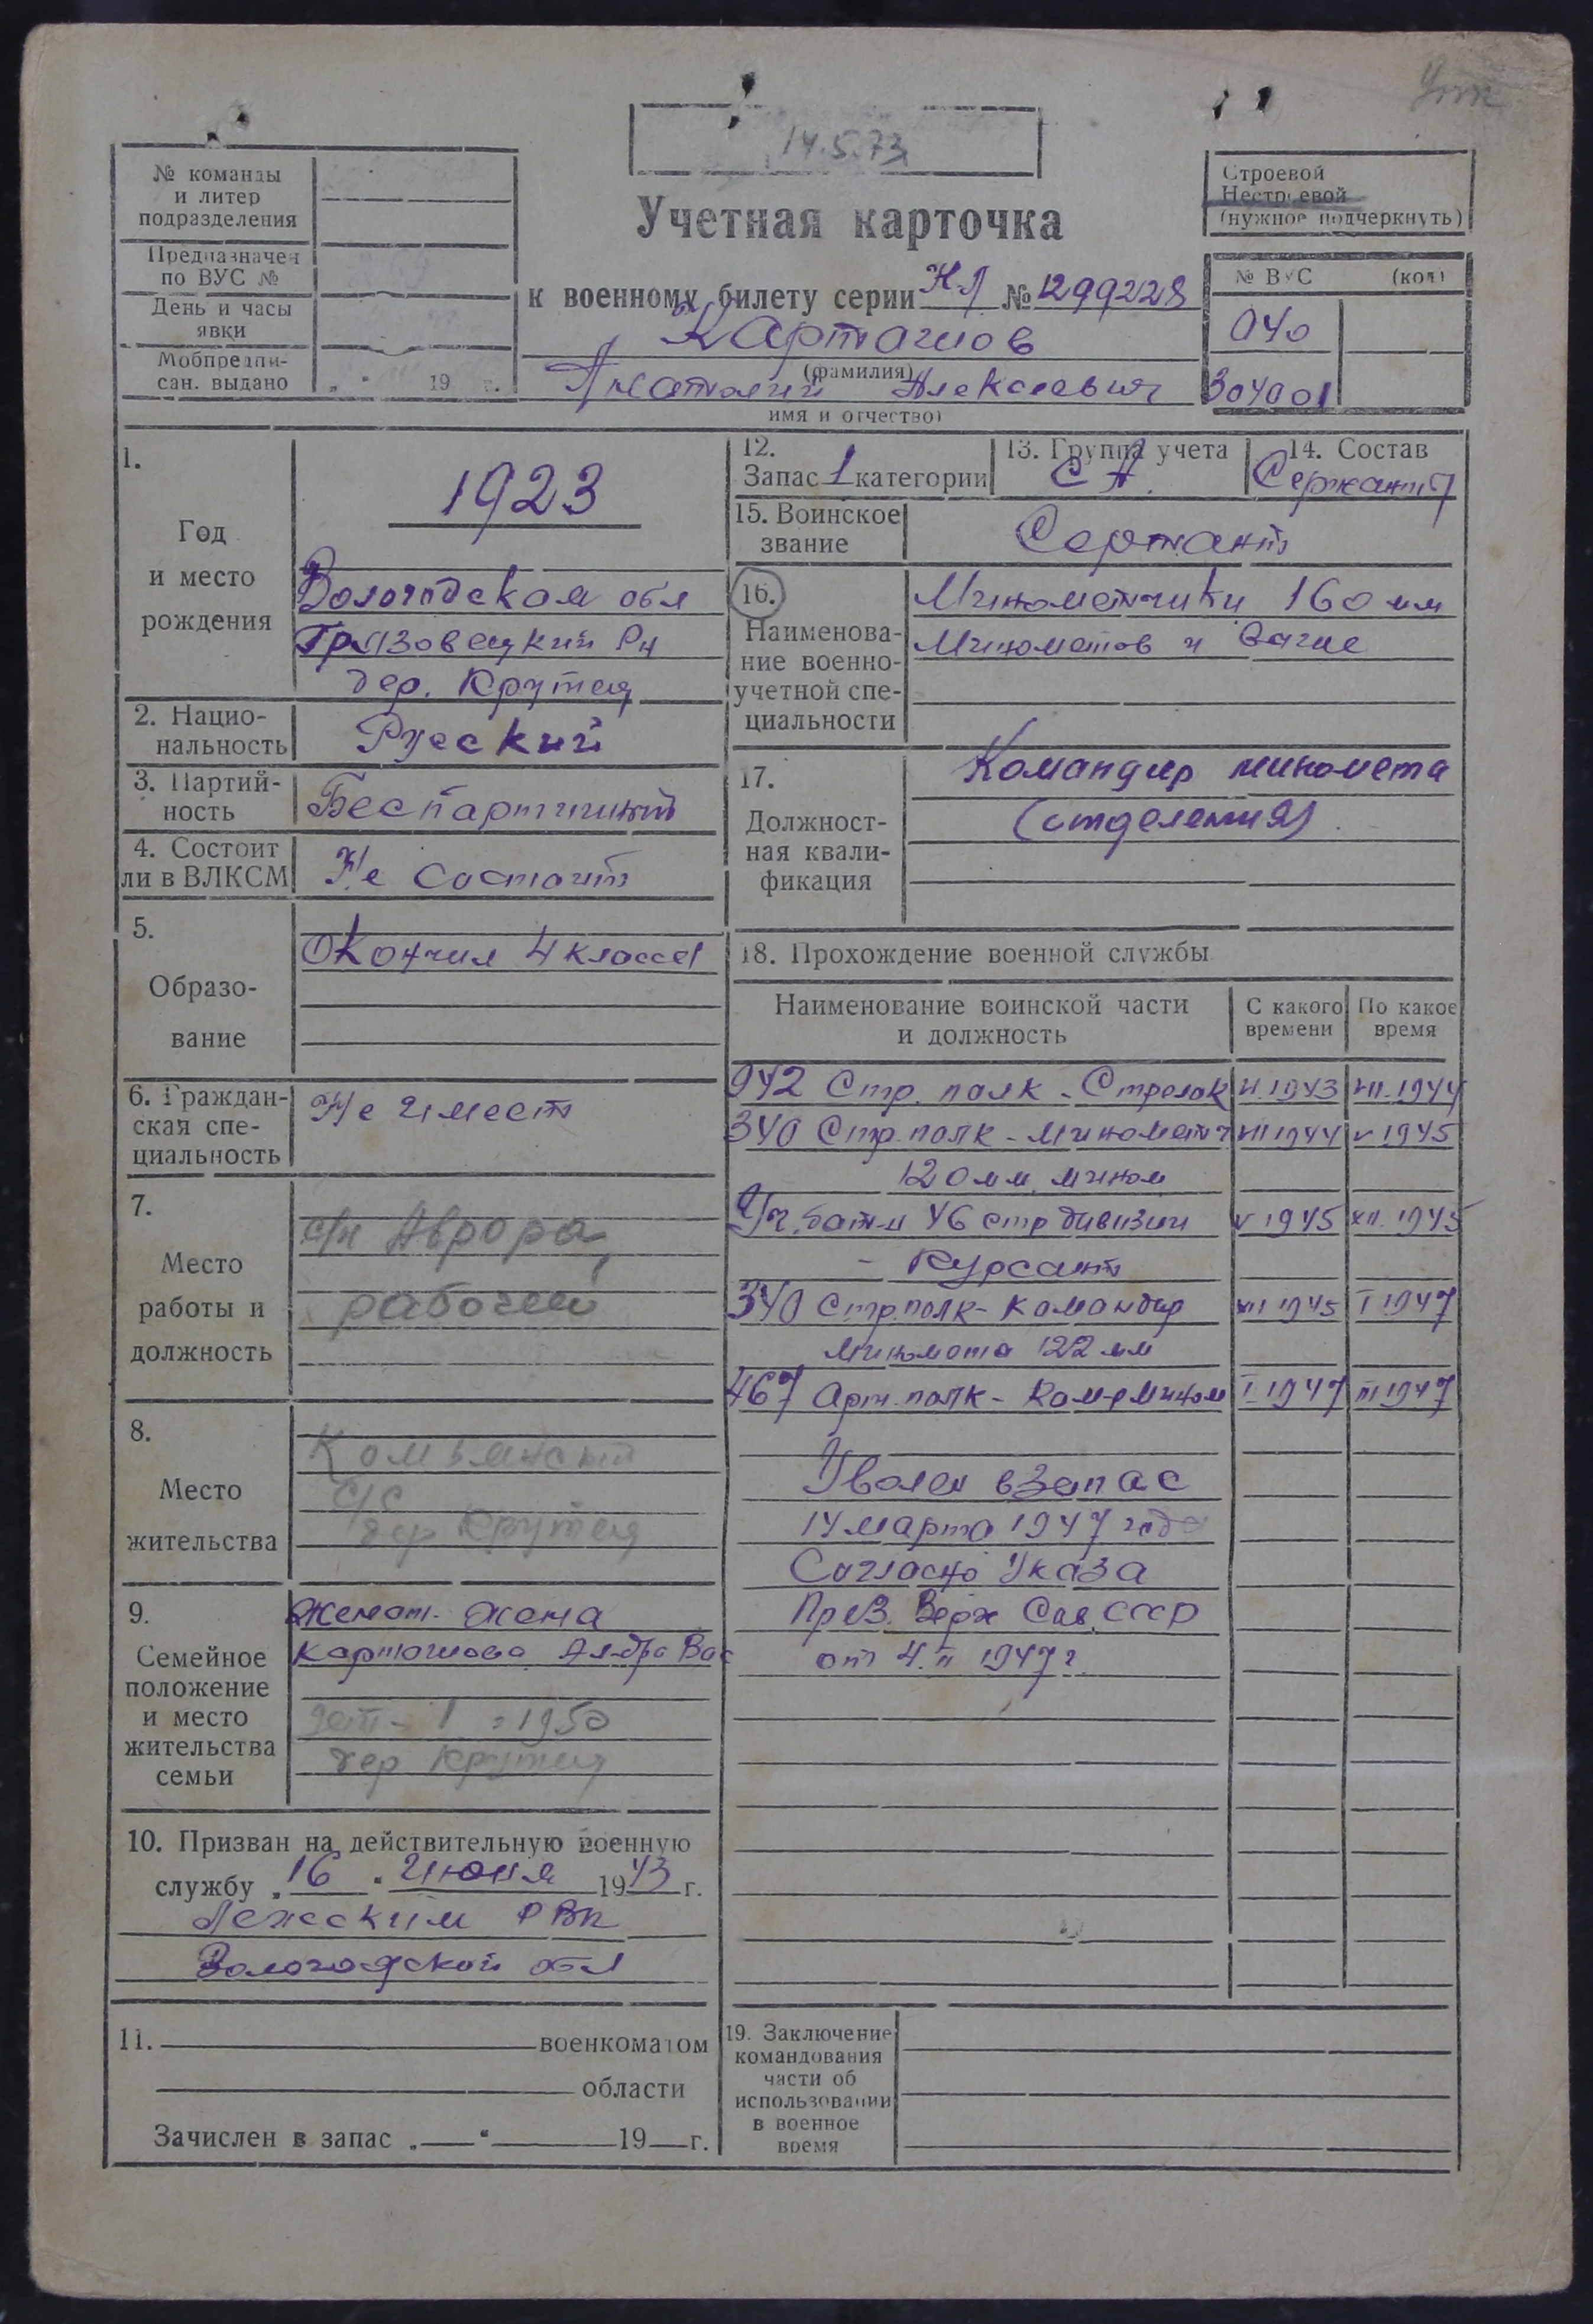 14.5.73
№ команды
и литер
подразделения
Предназначен
по ВУС №
День и часы
явки
Мобпредпи-
сан. выдано „ " 19 г.
Строевой
Нестроевой
(нужное подчеркнуть)
Учетная карточка
к военному билету серии НЛ № 1299228
Картагиов
(фамилия)
Анатолий Алексеевич
имя и отчество)
№ ВУС (код)
040
304001
1.
Год
и место
рождения
1923
Вологодская обл
Грязовецкий Рн
дер. Крутец
2. Нацио-
нальность
Русский
3. Партий-
ность
Беспартийный
4. Состоит
ли в ВЛКСМ
Не состоит
5.
Образо-
вание
Окончил 4 класса
6. Граждан-
ская спе-
циальность
Не имеет
7.
Место
работы и
должность
с/х Аврора,
рабочий
8.
Место
жительства
Комьянский
с/с
дер Крутец
9.
Семейное
положение
и место
жительства
семьи
Женат. жена
Ал-дра Вас
1950
дер Крутец
10. Призван на действительную военную
службу „16" июня 1943 г.
Лежским РВК
Вологодской обл
11. военкоматом
области
Зачислен в запас „ " 19 г.
12.
Запас 1 категории
13. Группа учета
СА.
14. Состав
Сержанты
15. Воинское
звание
Сержант
16.
Наименова-
ние военно-
учетной спе-
циальности
Минометчики 160 мм
Минометов и
17.
Должност-
ная квали-
фикация
Командир миномета
(отделения)
18. Прохождение военной службы
Наименование воинской части
и должность
С какого
времени
По какое
время
942 Стр. полк - Стрелок VI 1943 VII 1944
340 Стр. полк - Минометч VII 1944 V 1945
120 мм мином
Уч. бат-н 46 стр дивизии V 1945 XII 1945
- Курсант
340 Стр. полк - Командир XII 1945 I 1947
Миномета 122 мм
467 Арт. полк - Ком-р Мином I 1947 III 1947
Уволен в запас
14 марта 1947 года
Согласно Указа
През. Верх Сов. СССР
от 4.II 1947 г
19. Заключение
командования
части об
использовании
в военное
время